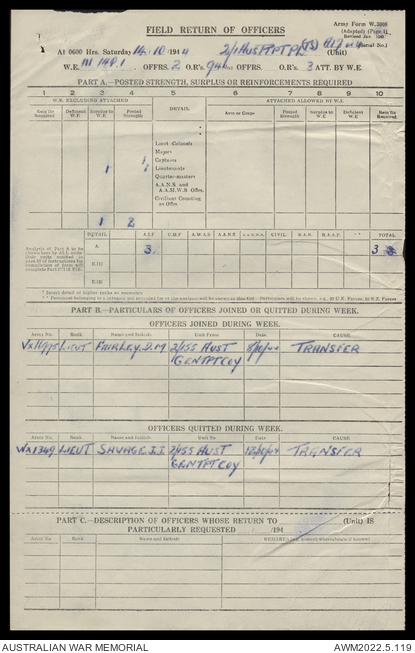 FIELD RETURN OF OFFICERS
Army Form W.3008
(Adapted) (Page 1)
At 0600 Hrs. Saturday 14.10.1944 2/1 AUST PTPL (TS) (Unit) (Serial No.)
W.E. III 140.1 OFFRS. 2 O.R's. OFFRS. O.R's 3 ATT. BY W.E.
PART A.—POSTED STRENGTH, SURPLUS OR REINFORCEMENTS REQUIRED
1 2 3 4 5 6 7 8 9 10
W.E. EXCLUDING ATTACHED ATTACHED ALLOWED BY W.E.
Rein for Required Deficient W.E. Surplus to W.E. Posted Strength DETAIL Arm or Corps Posted Strength Surplus to W.E. Deficient W.E. Rein for Required
Lieut-Colonels
Majors
Captains
1 Lieutenants
Quarter-masters
A.A.N.S. and A.A.M.W.S Offrs.
Civilians Counting as Offrs
1 2
DETAIL A.I.F. C.M.F. A.W.A.S. A.A.N.S. A.A.M.W.S. CIVIL R.N. R.A.A.F. TOTAL
Analysis of Part A to be
A. 3. 3
B.(i)
B.(ii)
* Insert detail of higher ranks as necessary.
PART B.—PARTICULARS OF OFFICERS JOINED OR QUITTED DURING WEEK.
OFFICERS JOINED DURING WEEK.
Army No. Rank Name and Initials Unit From Date CAUSE
VX16975 LIEUT FAIRLEY. D.M 2/155 AUST 8/10/44 TRANSFER
GENTPTCOY
OFFICERS QUITTED DURING WEEK.
Army No. Rank Name and Initials Unit to Date CAUSE
WX1349 LIEUT SAVAGE J.J. 2/155 AUST 12/10/44 TRANSFER
GENTPTCOY
PART C.—DESCRIPTION OF OFFICERS WHOSE RETURN TO (Unit) IS
PARTICULARLY REQUESTED /194
Army No. Rank Name and Initials REMARKS (i.e. present whereabouts if known)
AUSTRALIAN WAR MEMORIAL AWM2022.5.119